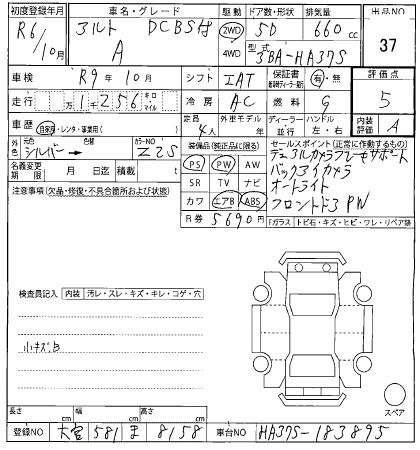 初度登録年月 車名・グレード 駆動 ドア数・形状 排気量 出品NO
R6/10月 アルト DCBS付 A 2WD 4WD 5D 660cc 37
型式 3BA-HA37S
車検 R9年10月 シフト IAT 保証書 有・無 燃料 G 評価点 5
走行 万1千256 キロ・マイル 冷房 AC
車歴 自家用・レンタ・事業用( ) 定員 4人 外車モデル 年 ディーラー 並行 ハンドル 左・右 内装評価 A
外色 元色 シルバー→ カラーNO Z2S
名義変更期限 月 日 積載 t
装備品(純正品に限る)
PS PW AW
SR TV ナビ
カワ エアB ABS
R券 5690円
セールスポイント(正常に動作するもの)
デュアルカメラブレーキサポート
バックアイカメラ
オートライト
フロントドア PW
注意事項(欠品・修復・不具合箇所および状態)
Fガラス トビ石・キズ・ヒビ・ワレ・リペア跡
検査員記入 内装 汚レ・スレ・キズ・キレ・コゲ・穴
小キズB
スペア
長さ cm 幅 cm 高さ cm
登録NO 大宮 581 ま 8158 車台NO HA37S-183895